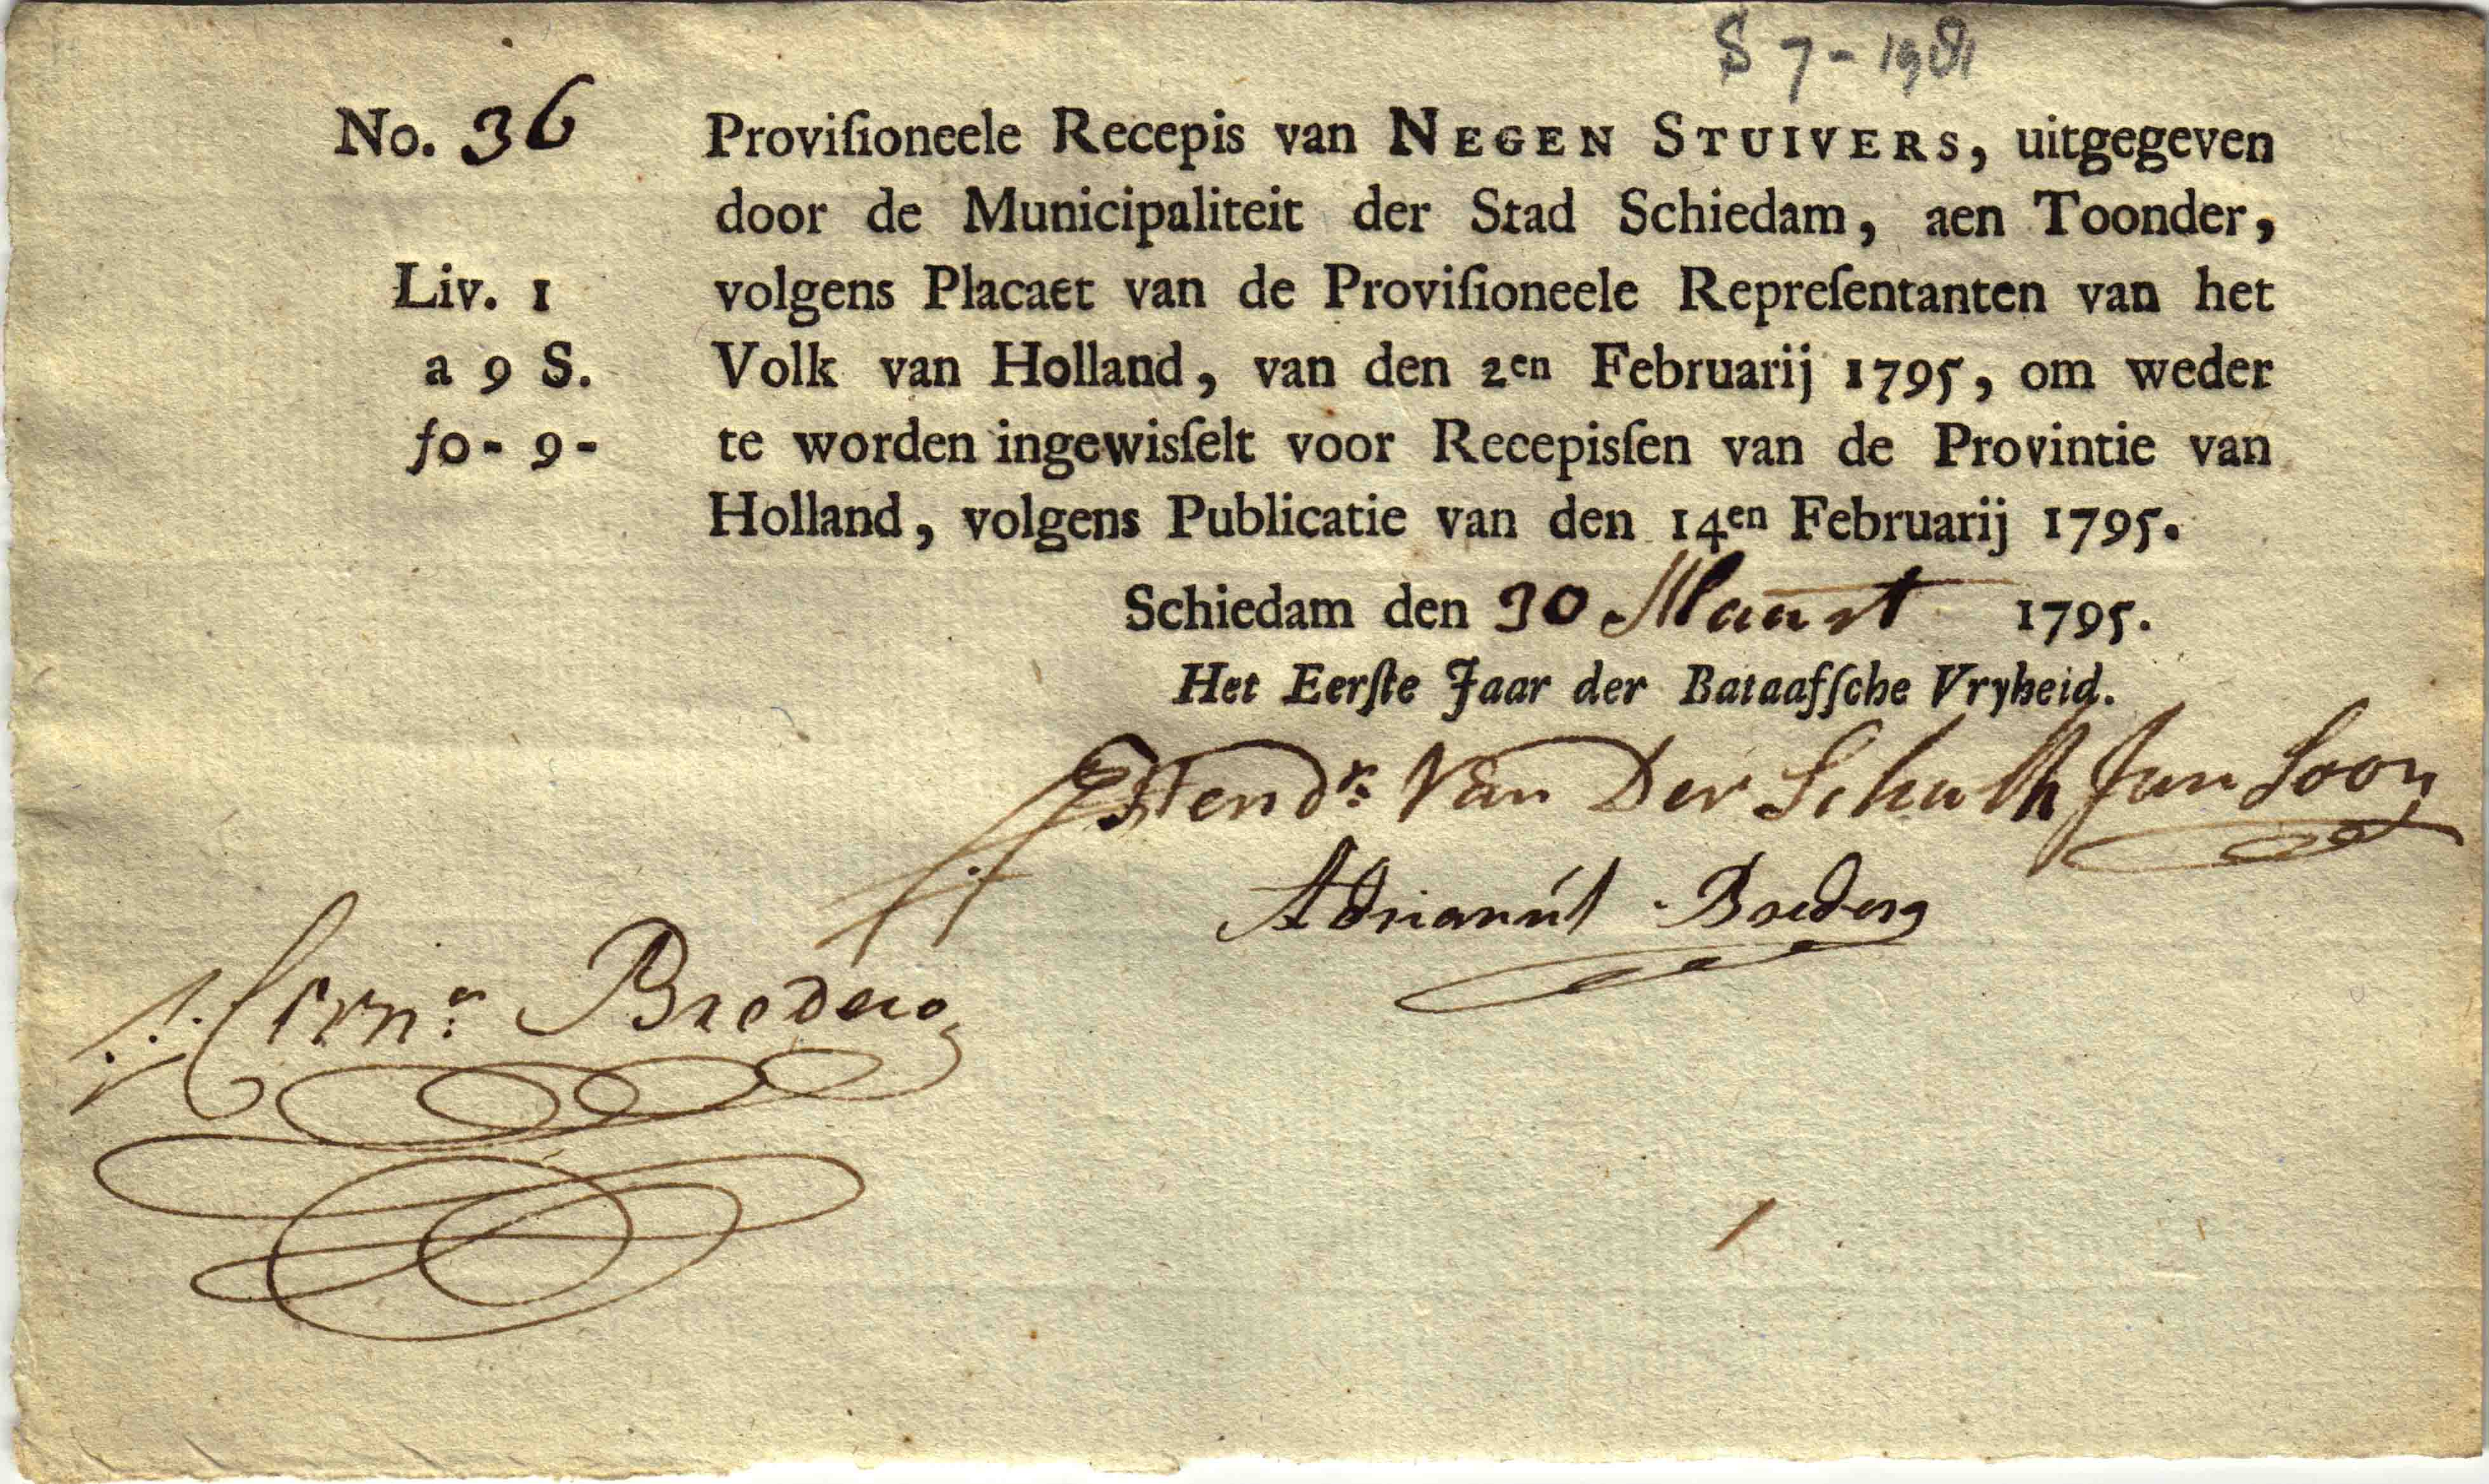 S 7-1981
No. 36
Liv. 1
a 9 S.
fo- 9-
Proviſioneele Recepis van NEGEN STUIVERS, uitgegeven
door de Municipaliteit der Stad Schiedam, aen Toonder,
volgens Placaet van de Proviſioneele Repreſentanten van het
Volk van Holland, van den 2en Februarij 1795, om weder
te worden ingewisſelt voor Recepisſen van de Provintie van
Holland, volgens Publicatie van den 14en Februarij 1795.
Schiedam den 30 Maart 1795.
Het Eerſte Jaar der Bataafſche Vryheid.
Hendr: Van Der Schalk Jan Soon
Adrianus
Corn: